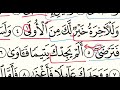 وَلَلْآخِرَةُ خَيْرٌ لَّكَ مِنَ الْأُولَىٰ ٤
فَتَرْضَىٰ ٥ أَلَمْ يَجِدْكَ يَتِيمًا فَآوَىٰ
عَائِلًا